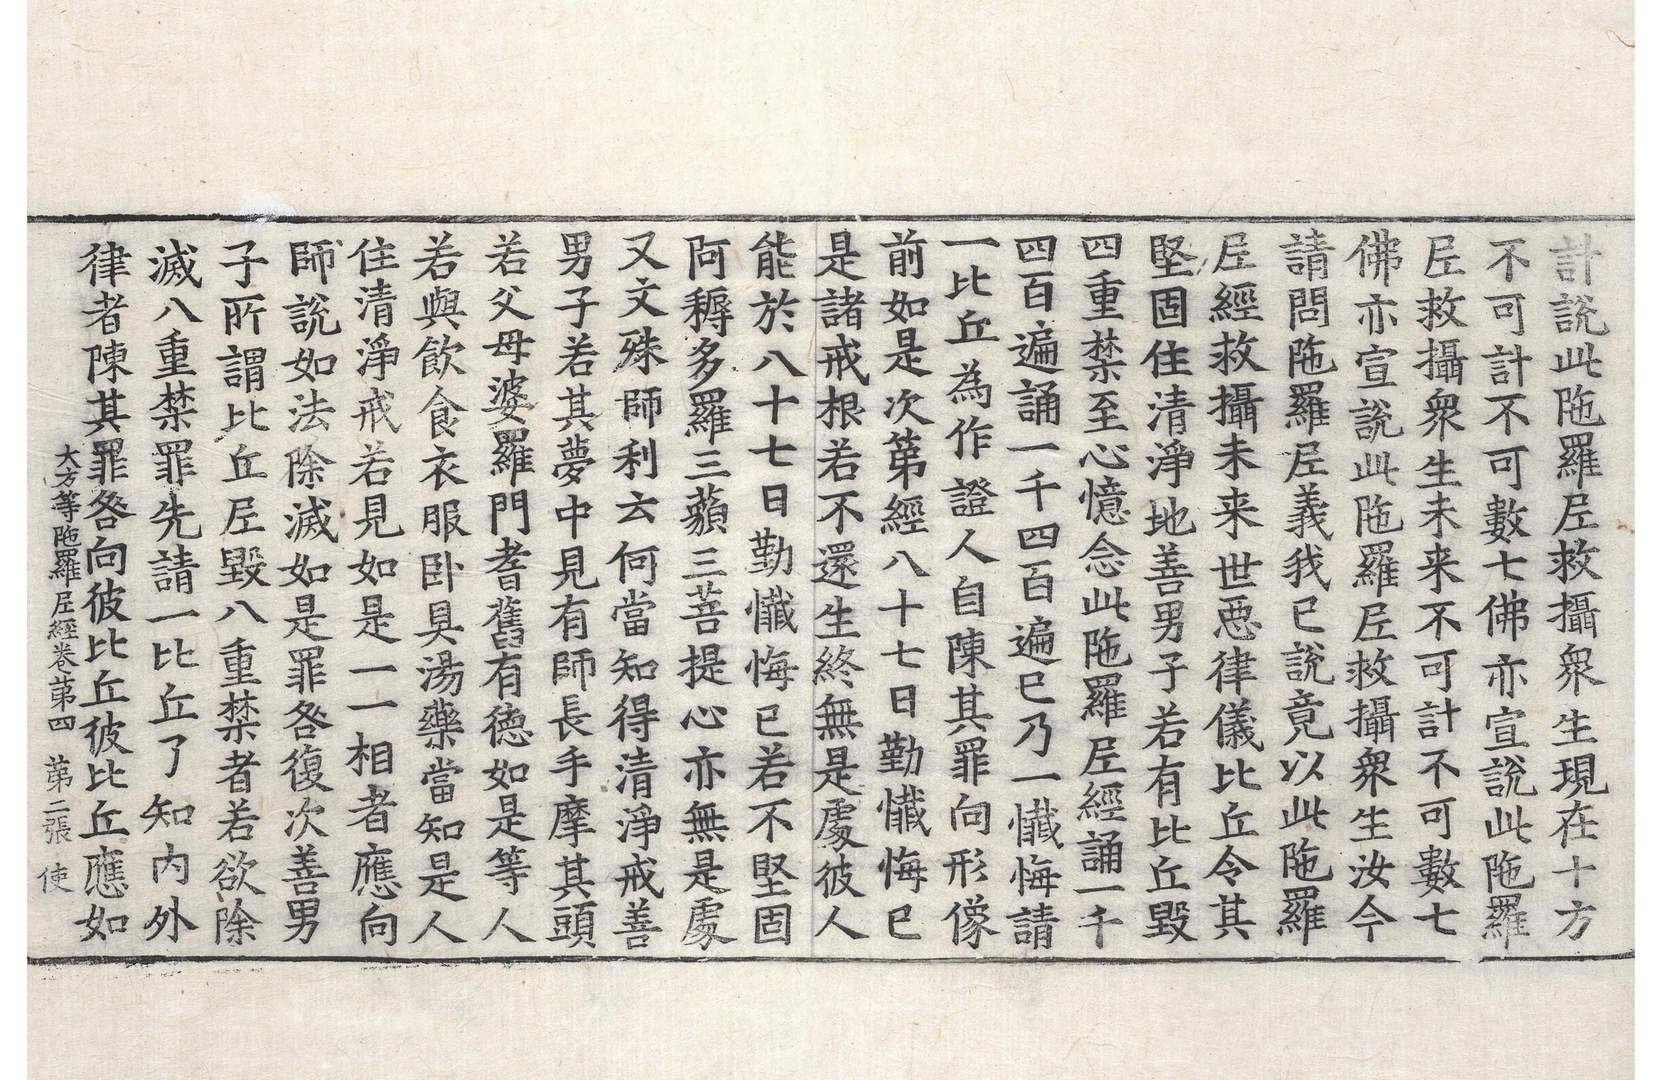 計說此陁羅尼救攝衆生現在十方
不可計不可數七佛亦宣說此陁羅
尼救攝衆生未来不可計不可數七
佛亦宣說此陁羅尼救攝衆生汝今
請問陁羅尼義我已說竟以此陁羅
尼經救攝未来世惡律儀比丘令其
堅固住清淨地善男子若有比丘毀
四重禁至心憶念此陁羅尼經誦一千
四百遍誦一千四百遍已乃一懺悔請
一比丘為作證人自陳其罪向形像
前如是次第經八十七日勤懺悔已
是諸戒根若不還生終無是處彼人
能於八十七日勤懺悔已若不堅固
阿耨多羅三藐三菩提心亦無是處
又文殊師利云何當知得清淨戒善
男子若其夢中見有師長手摩其頭
若父母婆羅門耆舊有德如是等人
若與飲食衣服卧具湯藥當知是人
住清淨戒若見如是一一相者應向
師說如法除滅如是罪咎復次善男
子所謂比丘尼毀八重禁者若欲除
滅八重禁罪先請一比丘了知內外
律者陳其罪咎向彼比丘彼比丘應如
大方等陁羅尼經卷第四 第二張 使